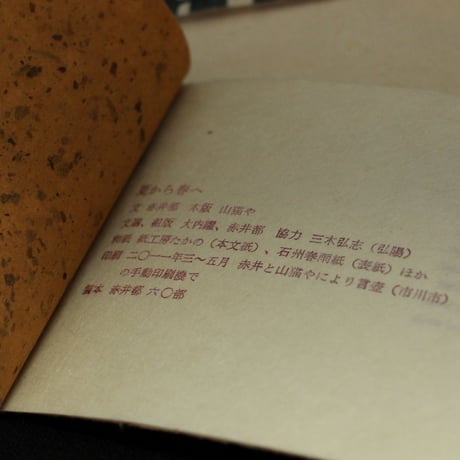 夏から春へ
文 赤井都 木版 山猫や
文選、組版 大内躍、赤井都 協力 三木弘志（弘陽）
和紙 紙工房たかの（本文紙）、石州春雨紙（表紙）ほか
印刷 二〇一一年三〜五月 赤井と山猫やにより言壺（市川市）
の手動印刷機で
製本 赤井都 六〇部